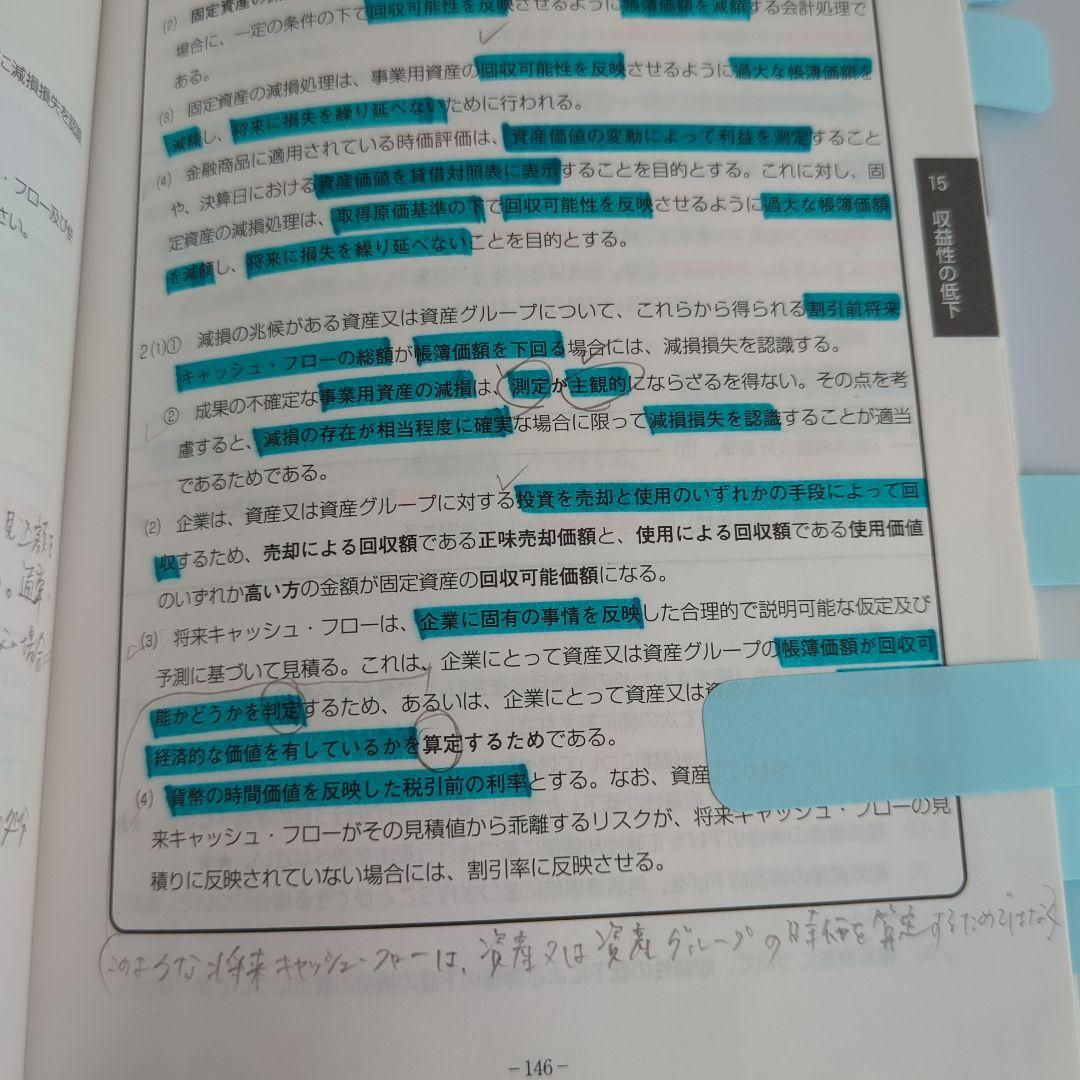 (2) 固定資産の
回収可能性を反映させるように帳簿価額を減額する会計処理で
場合に、一定の条件の下で
ある。
(3) 固定資産の減損処理は、事業用資産の回収可能性を反映させるように過大な帳簿価額を
減額し、将来に損失を繰り延べないために行われる。
(4) 金融商品に適用されている時価評価は、資産価値の変動によって利益を測定すること
や、決算日における資産価値を貸借対照表に表示することを目的とする。これに対し、固
定資産の減損処理は、取得原価基準の下で回収可能性を反映させるように過大な帳簿価額
を減額し、将来に損失を繰り延べないことを目的とする。
2(1)① 減損の兆候がある資産又は資産グループについて、これらから得られる割引前将来
キャッシュ・フローの総額が帳簿価額を下回る場合には、減損損失を認識する。
② 成果の不確定な事業用資産の減損は、測定が主観的にならざるを得ない。その点を考
慮すると、減損の存在が相当程度に確実な場合に限って減損損失を認識することが適当
であるためである。
(2) 企業は、資産又は資産グループに対する投資を売却と使用のいずれかの手段によって回
収するため、売却による回収額である正味売却価額と、使用による回収額である使用価値
のいずれか高い方の金額が固定資産の回収可能価額になる。
(3) 将来キャッシュ・フローは、企業に固有の事情を反映した合理的で説明可能な仮定及び
予測に基づいて見積る。これは、企業にとって資産又は資産グループの帳簿価額が回収可
能かどうかを判定するため、あるいは、企業にとって資産又は
経済的な価値を有しているかを算定するためである。
(4) 貨幣の時間価値を反映した税引前の利率とする。なお、資産
来キャッシュ・フローがその見積値から乖離するリスクが、将来キャッシュ・フローの見
積りに反映されていない場合には、割引率に反映させる。
(このような将来キャッシュ・フローは、資産又は資産グループの時価を算定するためではなく)
-146-
15 収益性の低下
に減損損失を認識
・フロー及び使
さい。
見込額